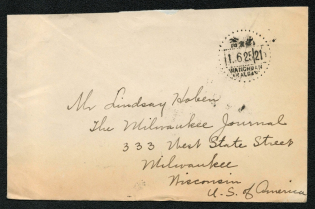 11.6.25.21
Mr Lindsay Hoben
The Milwaukee Journal
333 West State Street
Milwaukee
Wisconsin
U.S. of America